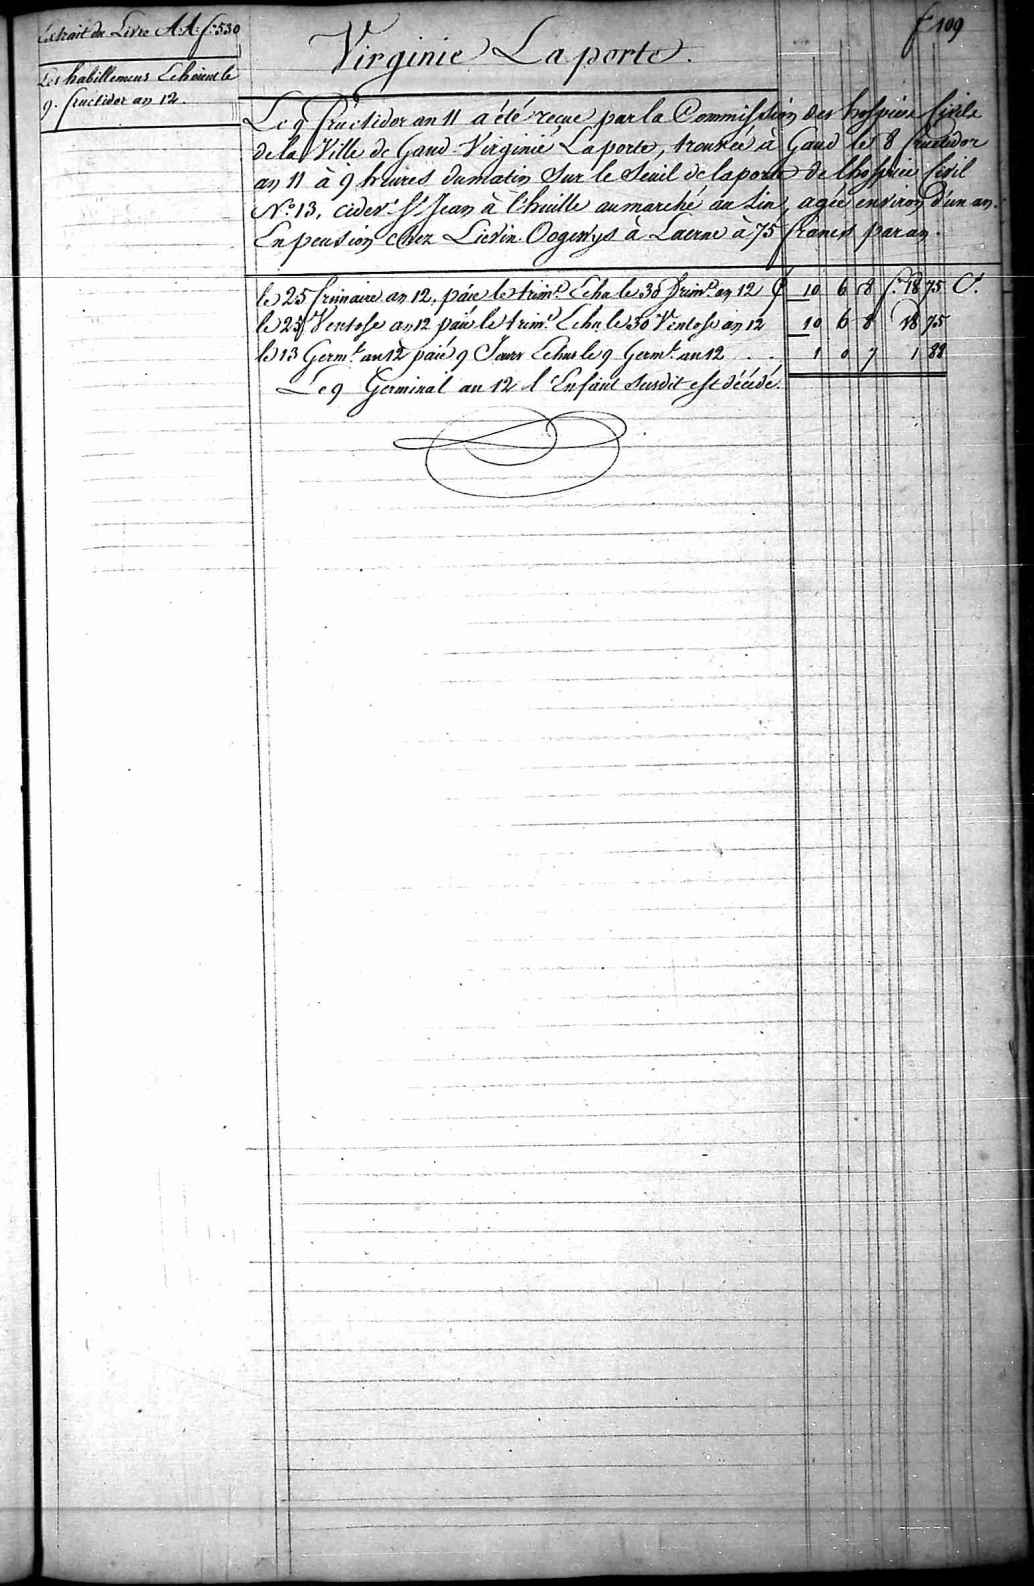 Extrait du Livre A: A: f:º 530
f 109
Virginie Laporte.
Les habillemens Echoient le
9. fructidor an 12.
Le 9 fructidor an 11 a été recue par la Commission des hospices Civils
de la Ville de Gand Virginie Laporte, trouvée à Gand le 8 fructidor
an 11 à 9 heures du matin sur le seuil de la porte de l'hospice Civil
Nº. 13, cidevt. St. Jean à l'huille au marché au Lin, agée environ d'un an.
En pension chez Lievin Oogewys à Laerne à 75 francs par an.
le 25 frimaire an 12, paié le trimre Echu le 30 frimre an 12 10 6 8 f. 18 75 Cs.
le 25 Ventose an 12 paié le trimre Echu le 30 Ventose an 12 10 6 8 18 75
le 13 Germl. an 12 paié 9 Jours Echus le 9 Germl. an 12 . . 1 0 7 1 88
Le 9 Germinal an 12 l'Enfant susdit est décédé.